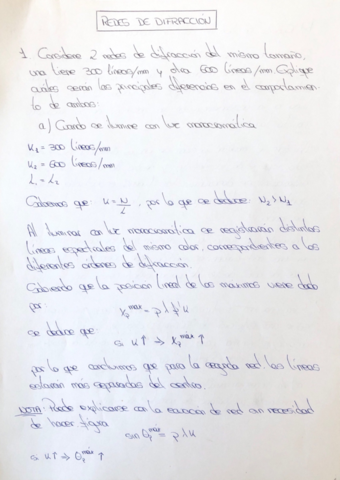 REDES DE DIFRACCIÓN
1. Considere 2 redes de difracción del mismo tamaño,
una tiene 300 líneas/mm y otra 600 líneas/mm. Explique
cuáles serán las principales diferencias en el comportamien-
to de ambas:
a) Cuando se ilumine con luz monocromática
K₁ = 300 líneas/mm
K₂ = 600 líneas/mm
L₁ = L₂
Sabemos que: K = N/L, por lo que se deduce: N₂ > N₁
Al iluminar con luz monocromática se registrarán distintas
líneas espectrales del mismo color, correspondientes a los
diferentes órdenes de difracción.
Sabiendo que la posición lineal de los máximos viene dada
por:
se deduce que:
si K↑ → Xₚᵐᵃˣ ↑
por lo que concluimos que para la segunda red, las líneas
estarán más separadas del centro.
NOTA: Puede explicarse con la ecuación de red sin necesidad
de hacer figura
sin θₚᵐᵃˣ = pλK
si K↑ → θₚᵐᵃˣ ↑